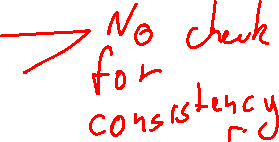 No check
for
consistency